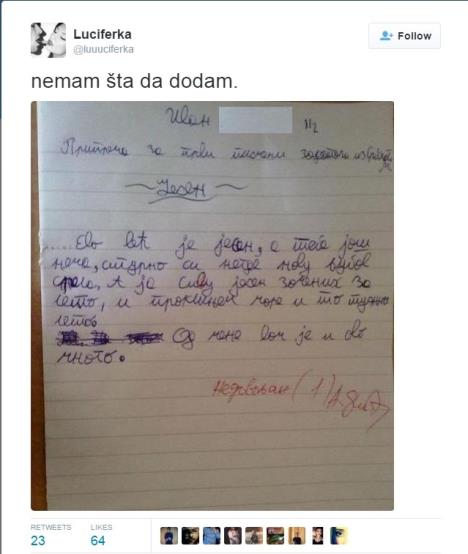 Luciferka
@luuuciferka
Follow
nemam šta da dodam.
Иван II2
Припрема за први писмени задатак из
Јесен
.....Ево већ је јесен, а тебе још
нема, сигурно си негде нову љубав
срела, А ја сиву јесен зочених за
лето, и проклињем море и то тужно
лето.
Од мене доч је и ово
много.
Недовољан (1)
RETWEETS
LIKES
23
64